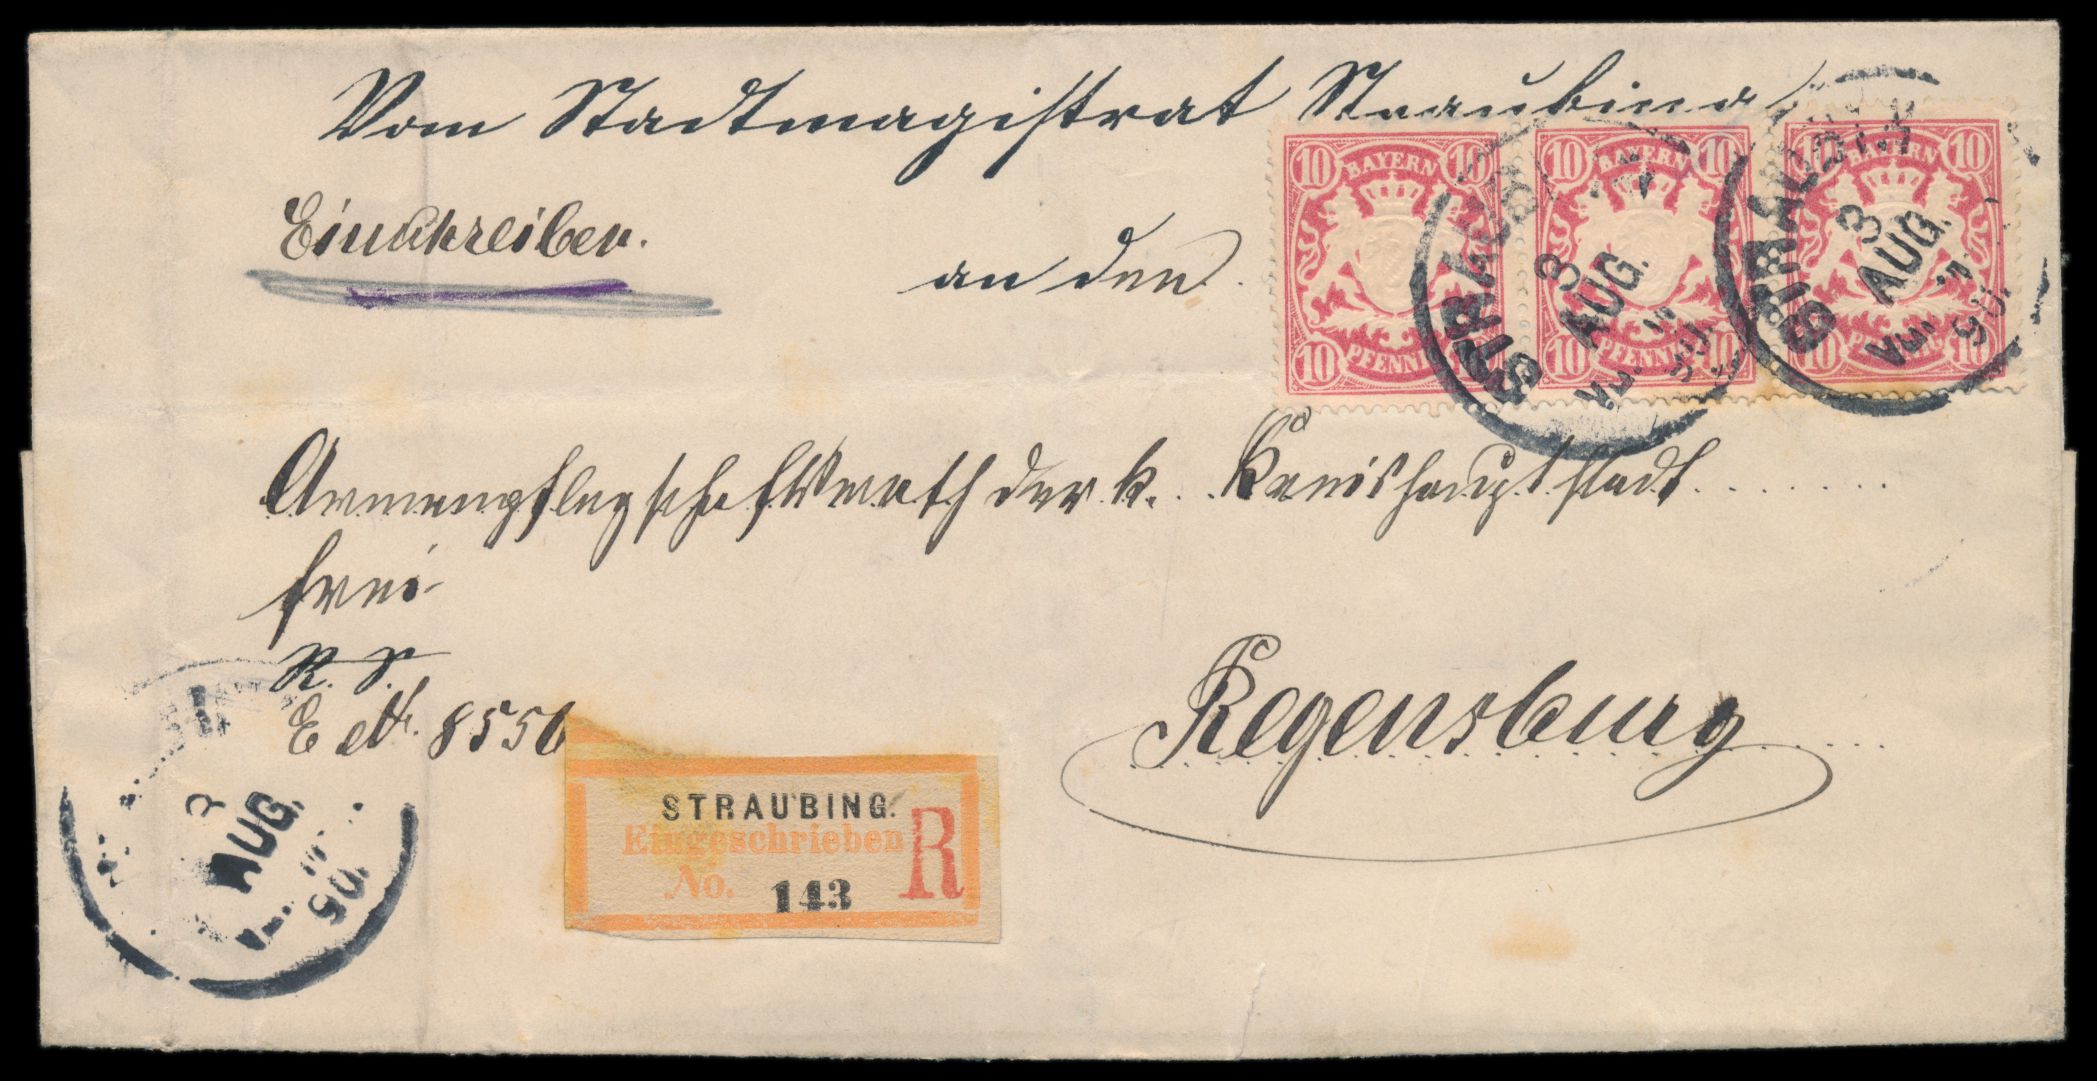 Vom Stadtmagistrat Straubing
Einschreiben.
an den
10 BAYERN 10
10 PFENNIG 10
10 BAYERN 10
10 PFENNIG 10
10 BAYERN 10
10 PFENNIG 10
STRAUBING
3
AUG.
90.
STRAUBING
3
AUG.
90.
Armenpflegschaftsrath der k. Kreishauptstadt
frei
R. S.
E. N. 8556
Regensburg
3
AUG.
90.
STRAUBING.
Eingeschrieben
No. 143
R